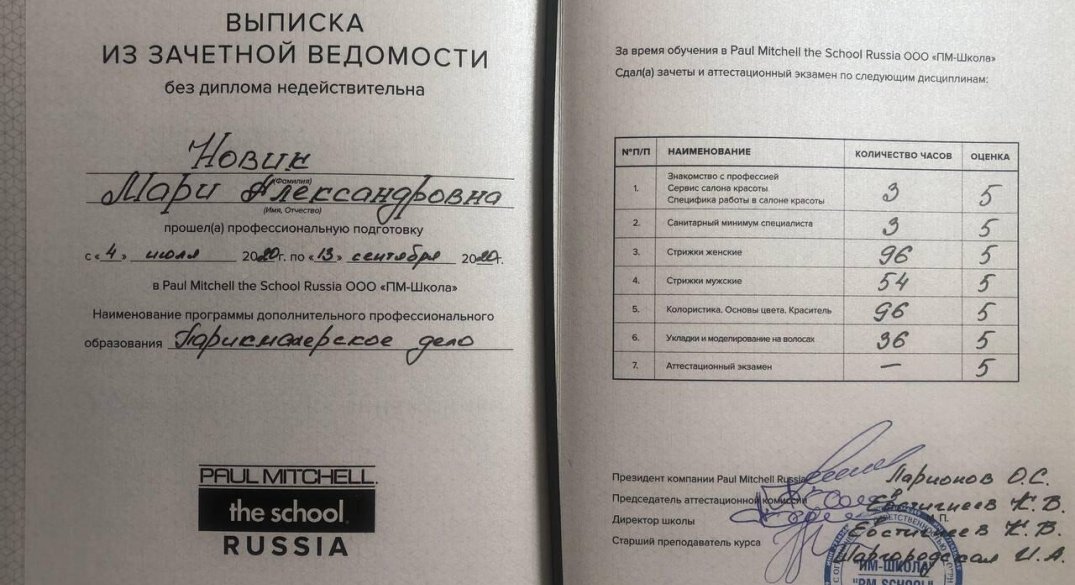 ВЫПИСКА
ИЗ ЗАЧЕТНОЙ ВЕДОМОСТИ
без диплома недействительна
Новик
(Фамилия)
Мари Александровна
(Имя, Отчество)
прошел(а) профессиональную подготовку
с «4» июля 2020г. по «13» сентября 2020г.
в Paul Mitchell the School Russia ООО «ПМ-Школа»
Наименование программы дополнительного профессионального
образования Парикмахерское дело
PAUL MITCHELL
the school
RUSSIA
За время обучения в Paul Mitchell the School Russia ООО «ПМ-Школа»
Сдал(а) зачеты и аттестационный экзамен по следующим дисциплинам:
№П/П НАИМЕНОВАНИЕ КОЛИЧЕСТВО ЧАСОВ ОЦЕНКА
1. Знакомство с профессией
Сервис салона красоты 3 5
Специфика работы в салоне красоты
2. Санитарный минимум специалиста 3 5
3. Стрижки женские 96 5
4. Стрижки мужские 54 5
5. Колористика. Основы цвета. Краситель 96 5
6. Укладки и моделирование на волосах 36 5
7. Аттестационный экзамен — 5
Президент компании Paul Mitchell Russia Ларионов О.С.
Председатель аттестационной комиссии Евстигнеев К.В.
Директор школы Евстигнеев К.В.
Старший преподаватель курса Шаргородская И.А.
П.
"ПМ-ШКОЛА"
"PM-SCHOOL"